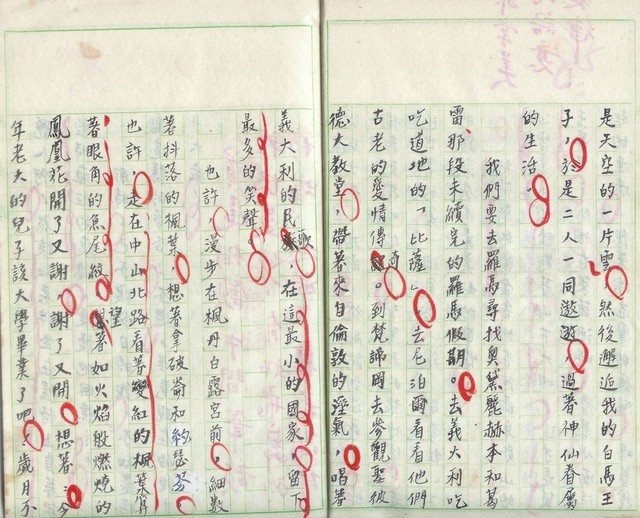 是天空的一片雲,然後邂逅我的白馬王
子,於是二人一同遨遊,過著神仙眷屬
的生活。
我們要去羅馬尋找奧黛麗赫本和葛
雷、那段未續完的羅馬假期。去義大利吃
吃道地的「比薩」,去尼泊爾看看他們
古老的愛情傳奇。到梵諦岡去參觀聖彼
德大教堂,帶著來自倫敦的溼氣,唱著
義大利的民歌,在這最小的國家,留下
最多的笑聲。
也許,漫步在楓丹白露宮前,細數
著抖落的楓葉,想著拿破崙和約瑟芬。
也許,走在中山北路看著變紅的楓葉算
著眼角的魚尾紋,望著如火焰般燃燒的
鳳凰花開了又謝,謝了又開,想著:今
年老大的兒子該大學畢業了吧,歲月不